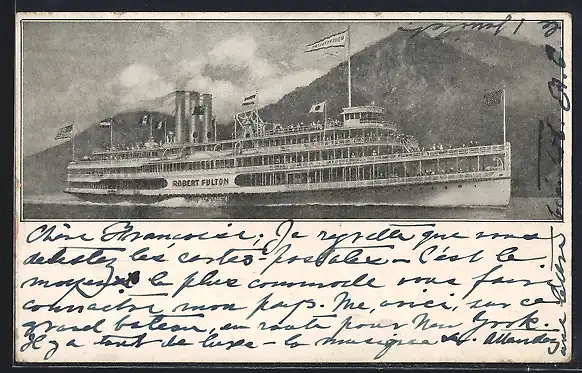 ROBERT FULTON
Chère Françoise, Je regrette que vous
detestez les cartes-postales - C'est le
moyen le plus commode vous faire
connaitre mon pays. Me voici, sur ce
grand bateau, en route pour New York.
Il y a tant de luxe - la musique &c. Attendez
une lettre